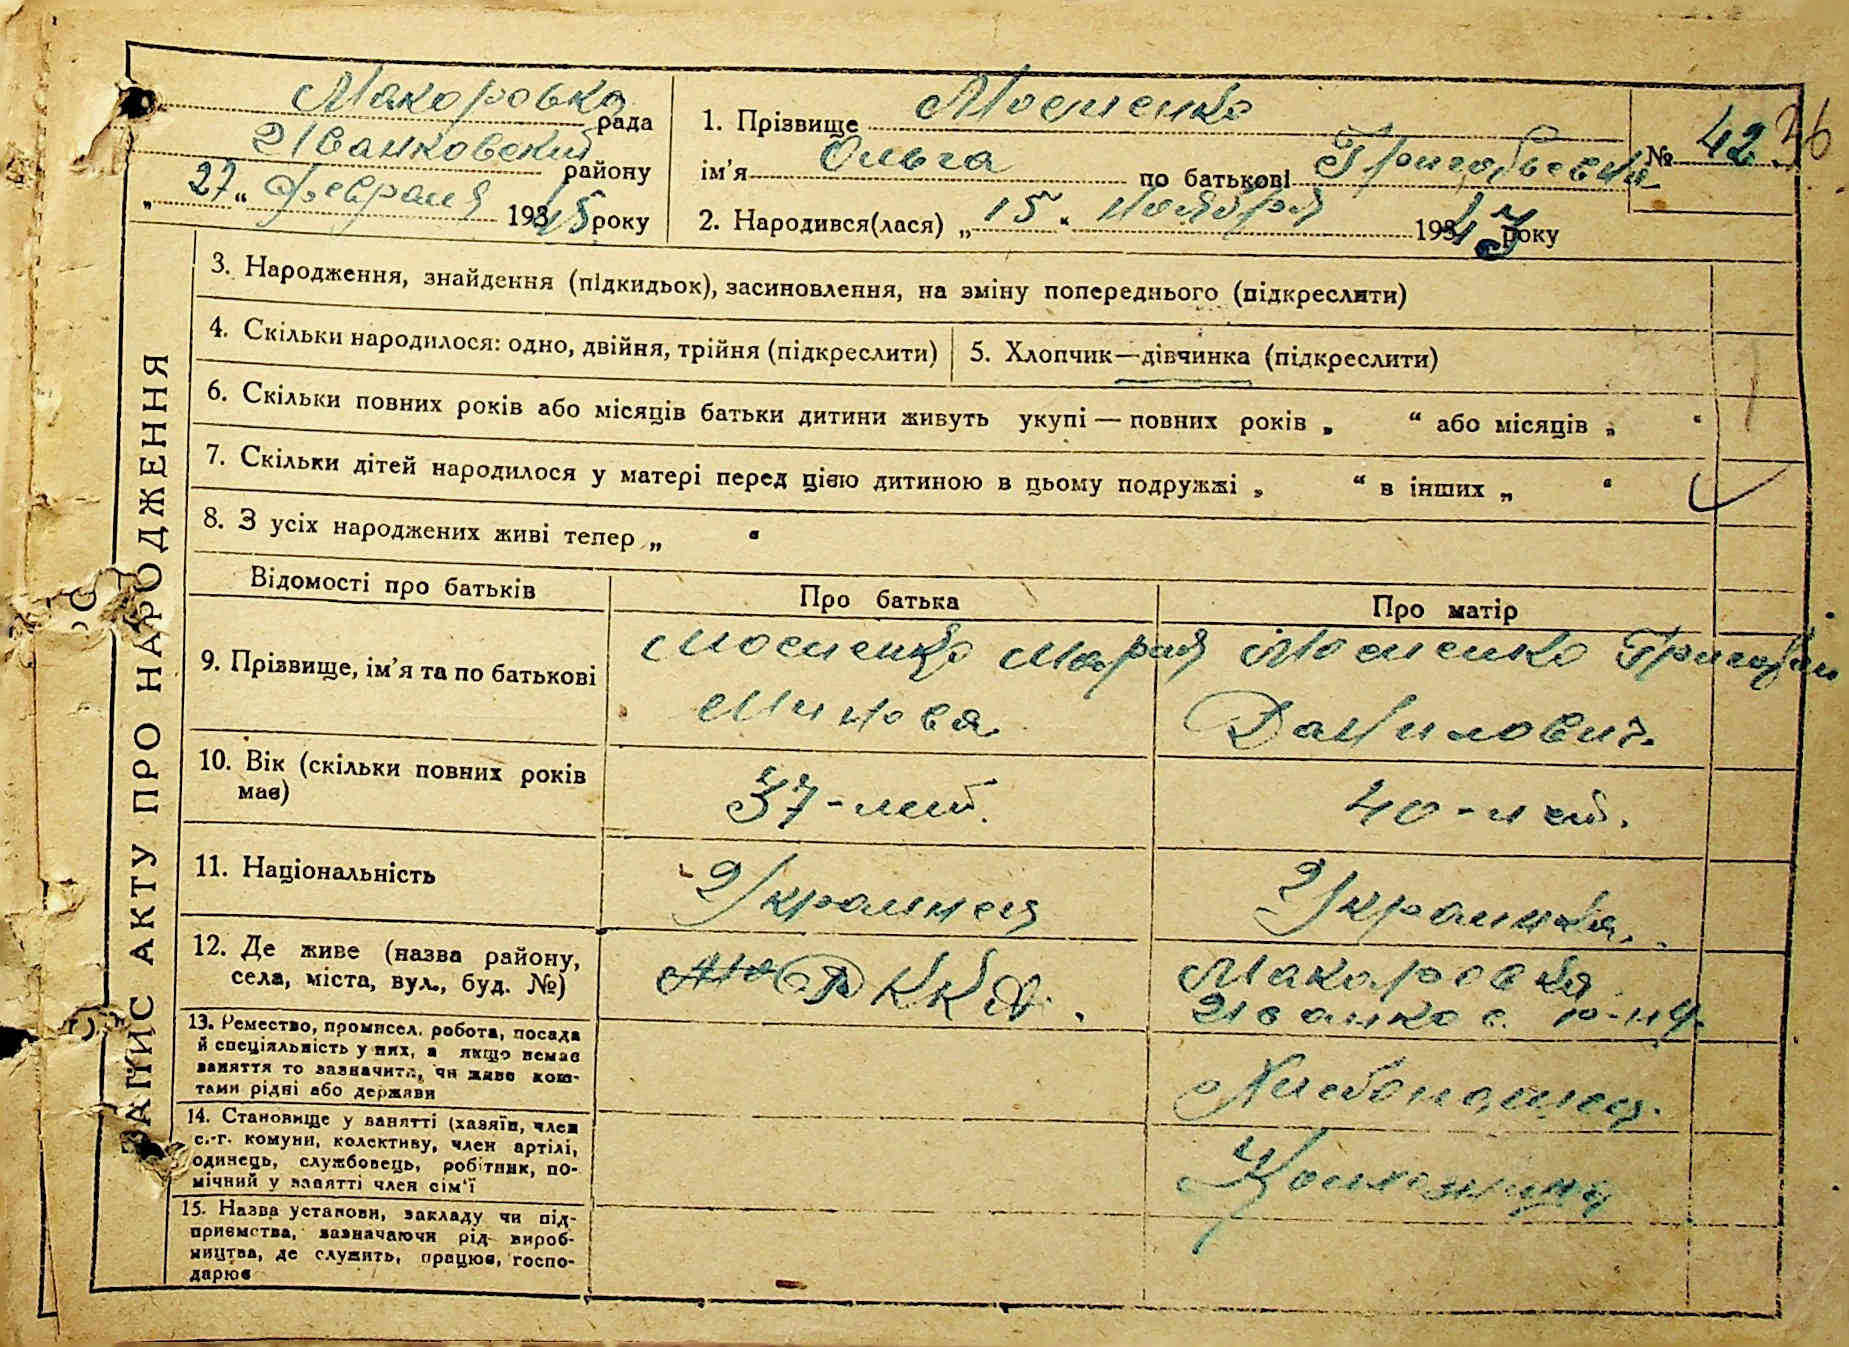 Макаровка рада
Иванковский району
„ 27 “ Февраля 1945 року
1. Прізвище Мосиенко
ім'я Ольга по батькові Григорьевна
№ 42
26
2. Народився(лася) „ 15 “ Ноября 1943 року
ЗАПИС АКТУ ПРО НАРОДЖЕННЯ
3. Народження, знайдення (підкидьок), засиновлення, на зміну попереднього (підкреслити)
4. Скільки народилося: одно, двійня, трійня (підкреслити)
5. Хлопчик—дівчинка (підкреслити)
6. Скільки повних років або місяців батьки дитини живуть укупі — повних років „ “ або місяців „ “
7. Скільки дітей народилося у матері перед цією дитиною в цьому подружжі „ “ в інших „ “
8. З усіх народжених живі тепер „ “
Відомості про батьків
Про батька
Про матір
9. Прізвище, ім'я та по батькові
Мосиенко Мария
Миновна
Мосиенко Григорий
Данилович.
10. Вік (скільки повних років
має)
37-лет.
40-лет.
11. Національність
Украинец
Украинка.
12. Де живе (назва району,
села, міста, вул., буд. №)
РККА.
Макаровка
Иванков. р-на.
13. Ремество, промисел, робота, посада
й спеціяльність у них, а якщо немає
заняття то зазначити, чи живе кош-
тами рідні або держави
Хлебопашец.
14. Становище у занятті (хазяїн, член
с.-г. комуни, колективу, член артілі,
одинець, службовець, робітник, по-
мічний у занятті член сім'ї
Колхозница
15. Назва установи, закладу чи під-
приємства, зазначаючи рід вироб-
ництва, де служить, працює, госпо-
дарює